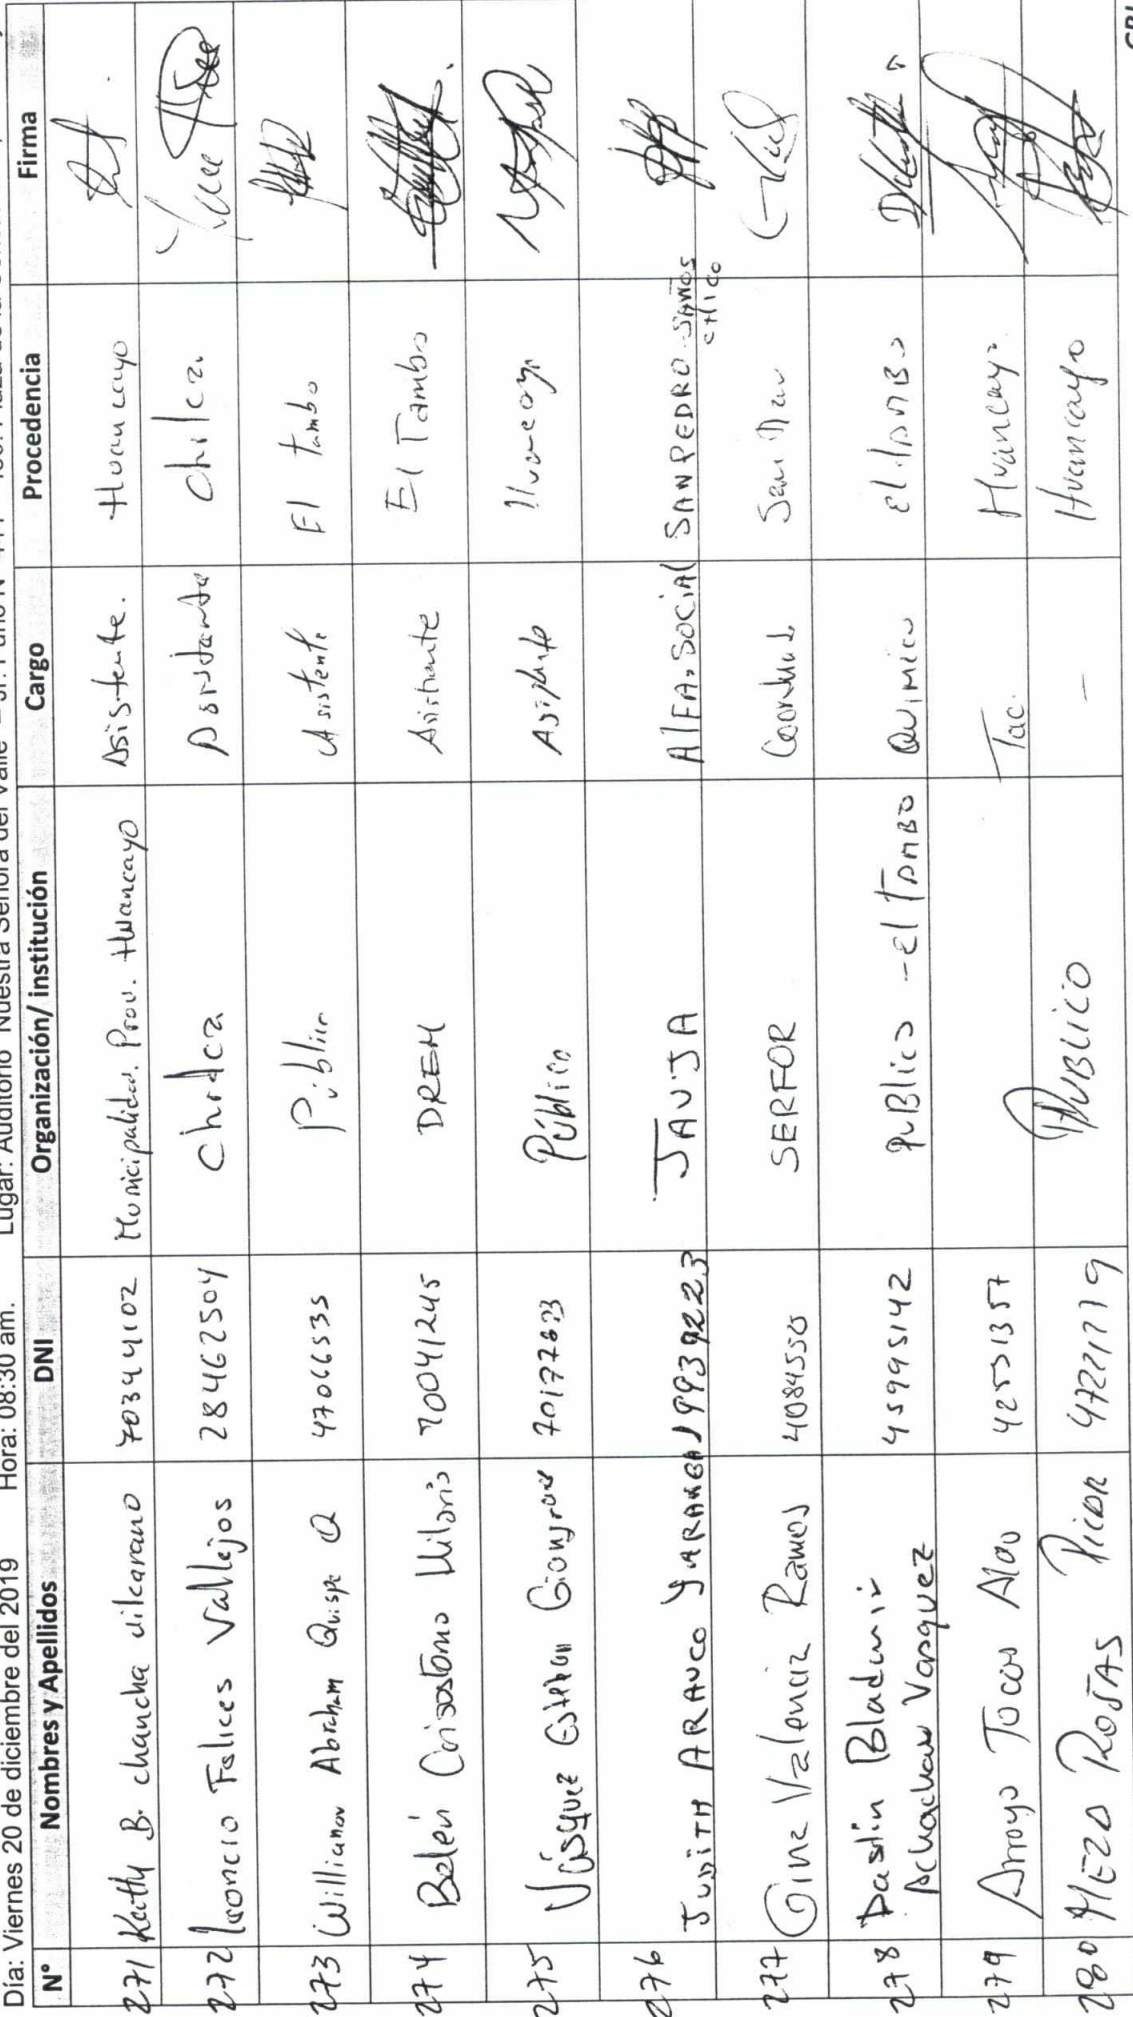 Día: Viernes 20 de diciembre del 2019 Hora: 08:30 am. Lugar: Auditorio "Nuestra Señora del Valle" – Jr. Puno N°
N° Nombres y Apellidos DNI Organización/ institución Cargo Procedencia Firma
271 Kathy B. chancha vilcarano 70344102 Municipalidad. Prov. Huancayo Asistente. Huancayo
272 Leoncio Felices Vallejos 28462504 Chilca Asistente Chilca
273 Willianov Abraham Quispe Q 47066535 Público Asistente El tambo
274 Belén Crisostomo Hilario 70041245 DREM Asistente El Tambo
275 Vásquez Esteban 70177633 Público Asistente Huancayo
276 JUDITH ARAUCO YARANGA 19939223 JAUJA ALFA.SOCIAL SAN PEDRO-SAÑOS
CHICO
277 Gina Valencia Ramos 40845550 SERFOR San
278 Daslin Bladimir 45995142 PUBlico - el TAMBO QUIMICO el TAMBO
Vasquez
279 Arroyo Tocas 42531357 Tac. Huancayo
280 MEZA ROJAS 47221719 PUBLICO – Huancayo